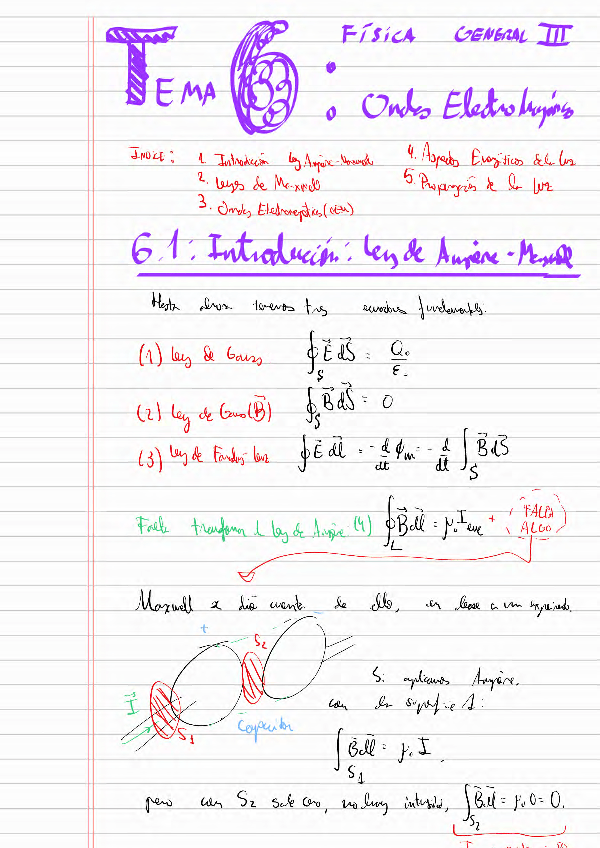 FÍSICA GENERAL III
TEMA 6: Ondas Electromagnéticas
ÍNDICE: 1. Introducción Ley Ampère-Maxwell
2. Leyes de Maxwell
3. Ondas Electromagnéticas
4. Aspectos Energéticos de la luz
5. Propagación de la luz
6.1: Introducción: Ley de Ampère-Maxwell
Hasta ahora tenemos tres ecuaciones fundamentales.
(1) Ley de Gauss ∮_S E⃗ dS⃗ = Q₀/ε₀
(2) Ley de Gauss (B⃗) ∮_S B⃗ dS⃗ = 0
(3) Ley de Faraday-Lenz ∮ E⃗ dl⃗ = - d/dt ϕm = - d/dt ∫_S B⃗ dS⃗
Falta transformar la Ley de Ampère (4) ∮_L B⃗ dl⃗ = μ₀ I + (FALTA ALGO)
Maxwell se dió cuenta de ello, en base a un experimento.
+ -
S₂
I⃗
S₁
Capacitor
Si aplicamos Ampère,
con la superficie 1:
∫_S₁ B⃗ dl⃗ = μ₀ I
pero con S₂ sale cero, no hay intensidad, ∫_S₂ B⃗ dl⃗ = μ₀ 0 = 0.